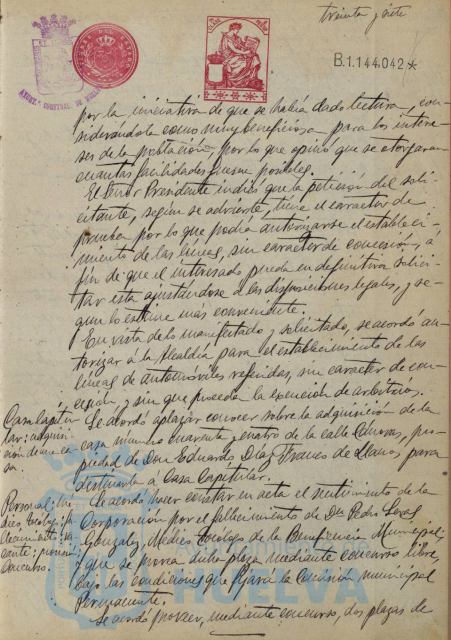 treinta y siete
B.1.144.042*
por la iniciativa de que se había dado lectura, con-
siderándola como muy beneficiosa para los intere-
ses de la población, por lo que opinó que se otorgaran
cuantas facilidades fuesen posibles.
El Señor Presidente indicó que la petición del soli-
citante, según se advierte, tiene el carácter de
prueba por lo que podía autorizarse el estableci-
miento de las líneas, sin carácter de concesión, a
fin de que el interesado pueda en definitiva solici-
tar esta ajustándose a las disposiciones legales, y se-
gún lo estime más conveniente.
En vista de lo manifestado y solicitado, se acordó au-
torizar á la Alcaldía para el establecimiento de las
líneas de automóviles referidas, sin carácter de con-
cesión, y sin que proceda la exención de arbitrios.
Casa Capitu-
lar: adquisi-
ción de una ca-
sa.
Se acordó aplazar conocer sobre la adquisición de la
casa número cuarenta y cuatro de la calle Cánovas, pro-
piedad de Don Eduardo Díaz Franco de Llanos, para
destinarla á Casa Capitular.
Personal: Mé-
dico, tocólogo: fa-
llecimiento: va-
cante: provisión:
Concurso.
Se acordó hacer constar en acta el sentimiento de la
Corporación por el fallecimiento de Dn Pedro
González, Médico Tocólogo de la Beneficencia Municipal,
y que se provea dicha plaza mediante concurso libre,
bajo las condiciones que fijará la Comisión municipal
Permanente.
Se acordó proveer, mediante concurso, dos plazas de
HUELVA